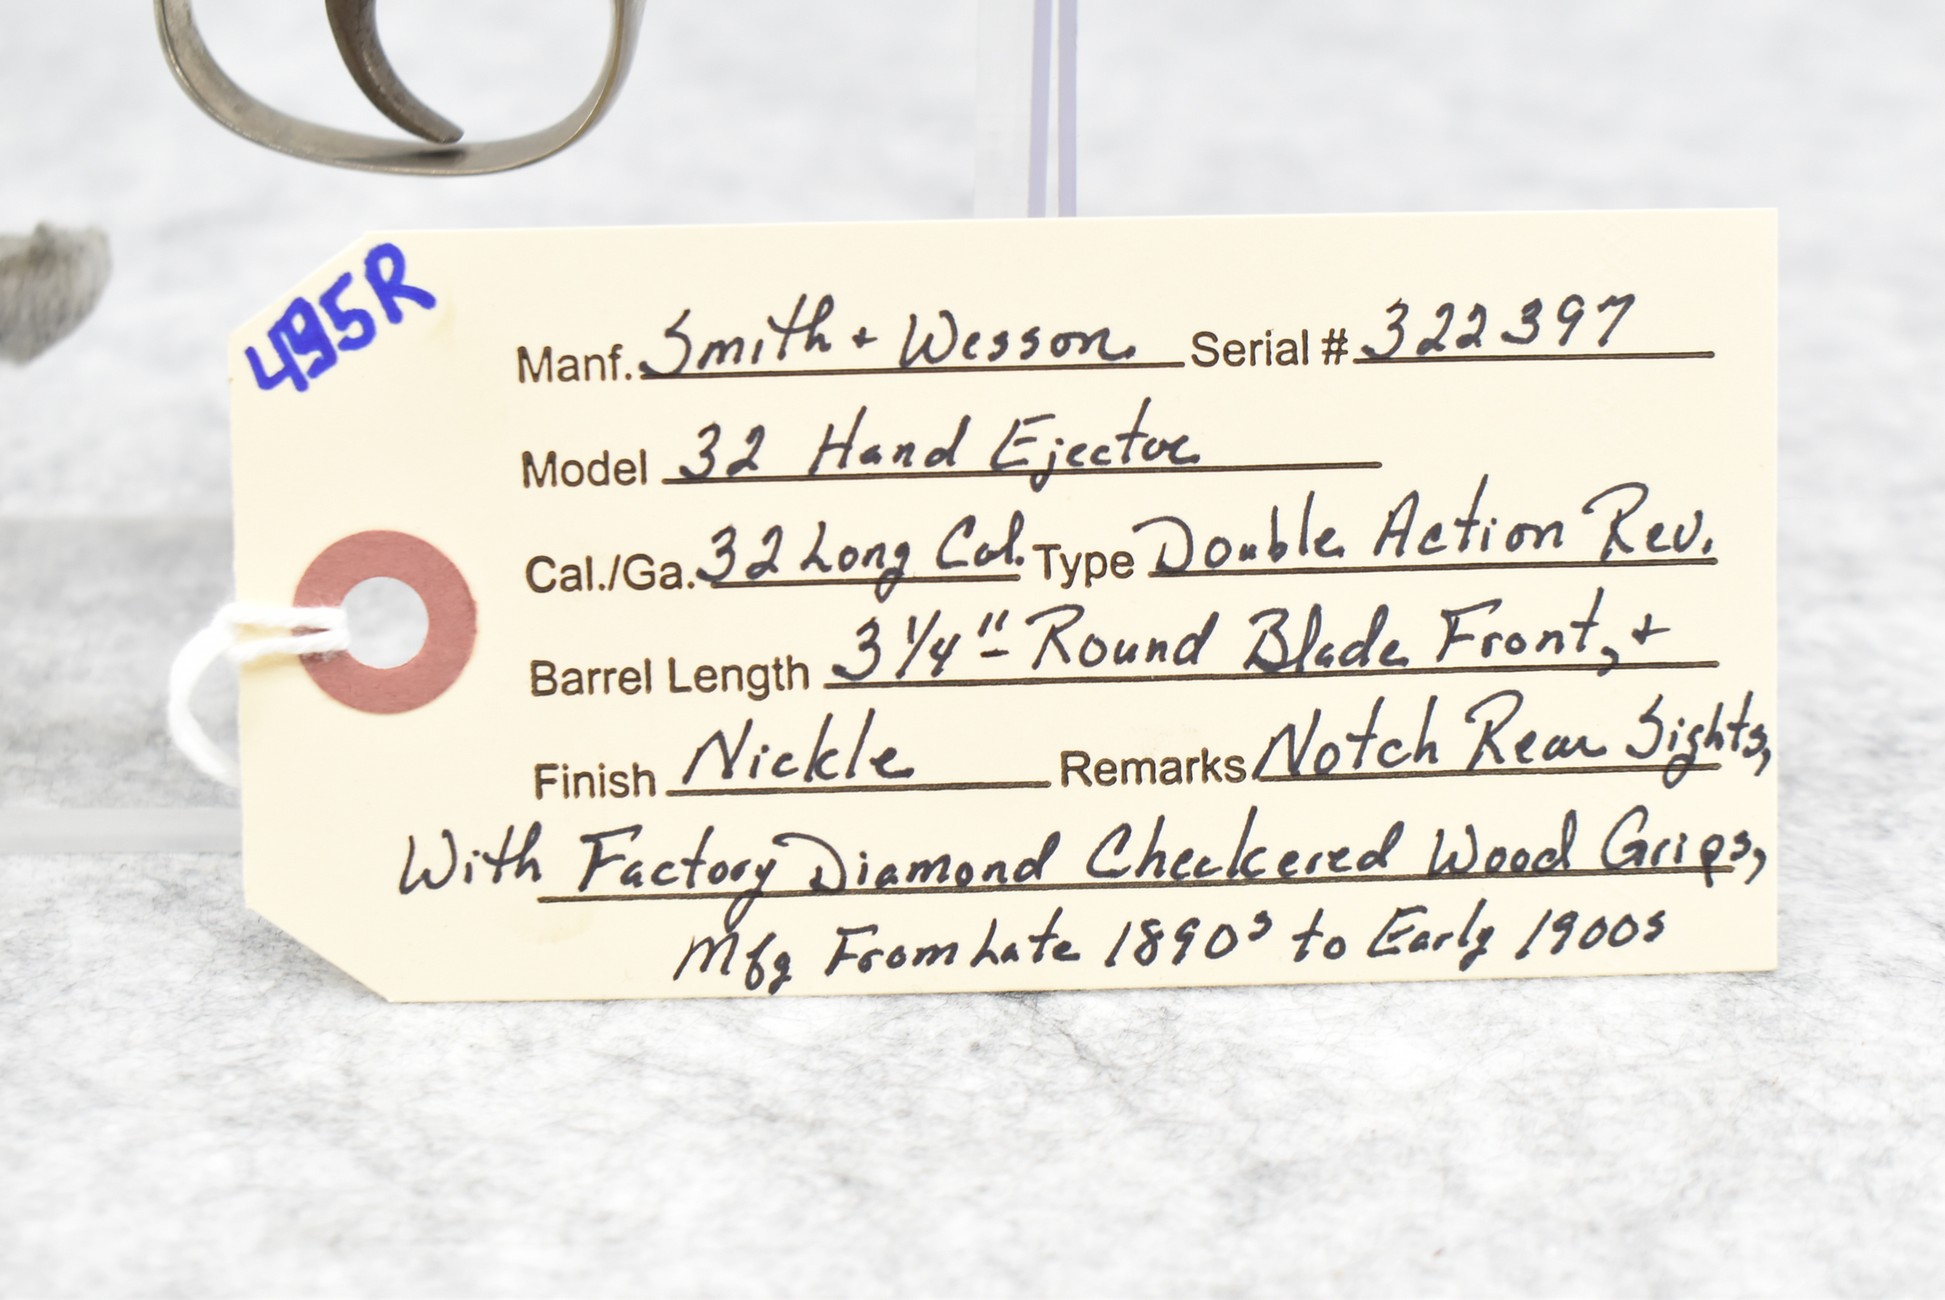 495R
Manf. Smith + Wesson Serial # 322397
Model 32 Hand Ejector
Cal./Ga. 32 Long Cal. Type Double Action Rev.
Barrel Length 3 1/4" - Round Blade Front, +
Finish Nickle Remarks Notch Rear Sights,
With Factory Diamond Checkered Wood Grips,
Mfg From Late 1890s to Early 1900s